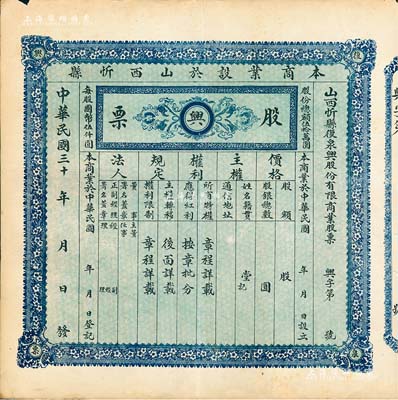 本商業設於山西忻縣
股票
興
山西忻縣復泉興股份有限商業股票 興字第 號
股份總額伍拾萬圓 本商業於中華民國 年 月 日設立
價格 股額 股 股銀總數 圓
主權 姓名籍貫 堂記 通信地址
權利 所有職權 章程詳載 應得紅利 按章批分
規定 主權轉移 後面詳載 權利限制 章程詳載
法人
每股國幣伍仟圓 本商業於中華民國 年 月 日登記
中華民國三十 年 月 日發
復
興
泉
興字第